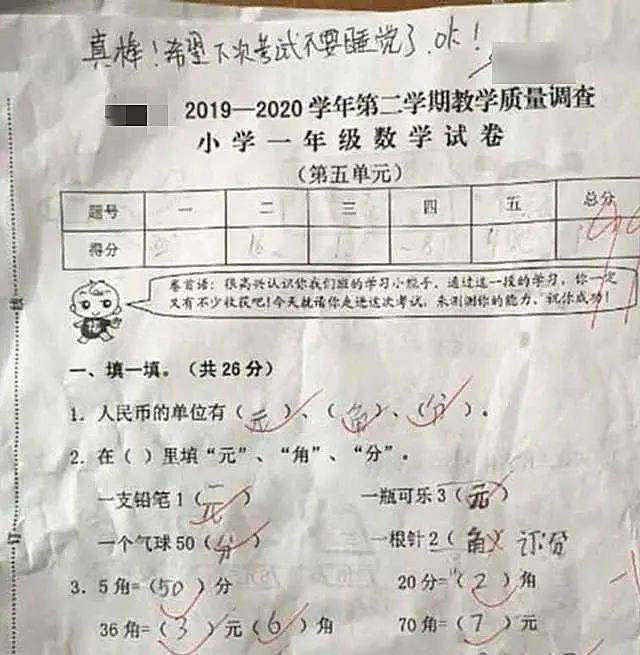 真棒！希望下次考试不要睡觉了，ok！
2019—2020学年第二学期教学质量调查
小学一年级数学试卷
（第五单元）
题号 一 二 三 四 五 总分
得分 16 8
卷首语：很高兴认识你我们班的学习小能手，通过这一段的学习，你一定
又有不少收获吧！今天就请你走进这次考试，来测测你的能力，祝你成功！
一、填一填。（共26分）
1. 人民币的单位有（元）、（角）、（分）。
2. 在（ ）里填“元”、“角”、“分”。
一支铅笔1（元） 一瓶可乐3（元）
一个气球50（分） 一根针2（角） 分
3. 5角=（50）分 20分=（2）角
36角=（3）元（6）角 70角=（7）元
订